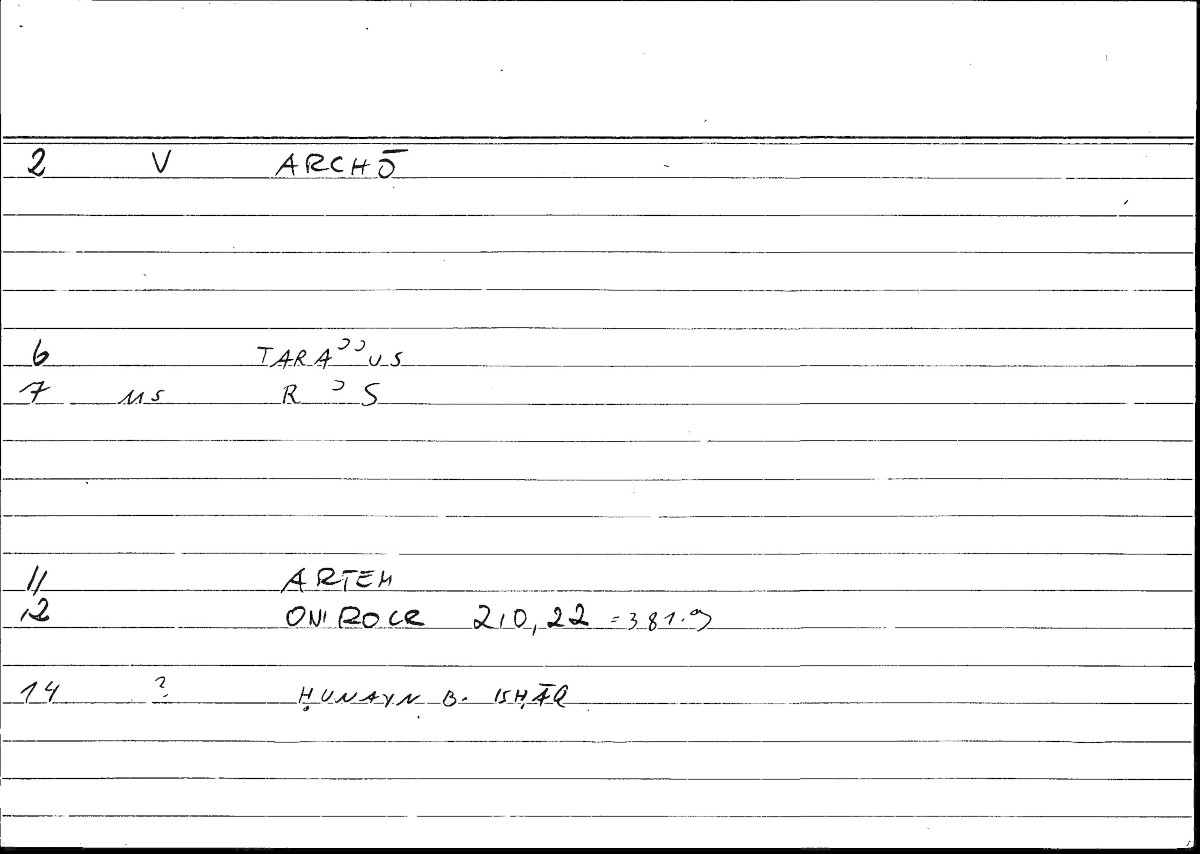 2 V ARCHŌ
6 TARAʾʾUS
7 MS R ʾ S
11 ARTEM
12 ONIROCR 210,22 = 381.9
14 ? ḤUNAYN B. ISḤĀQ